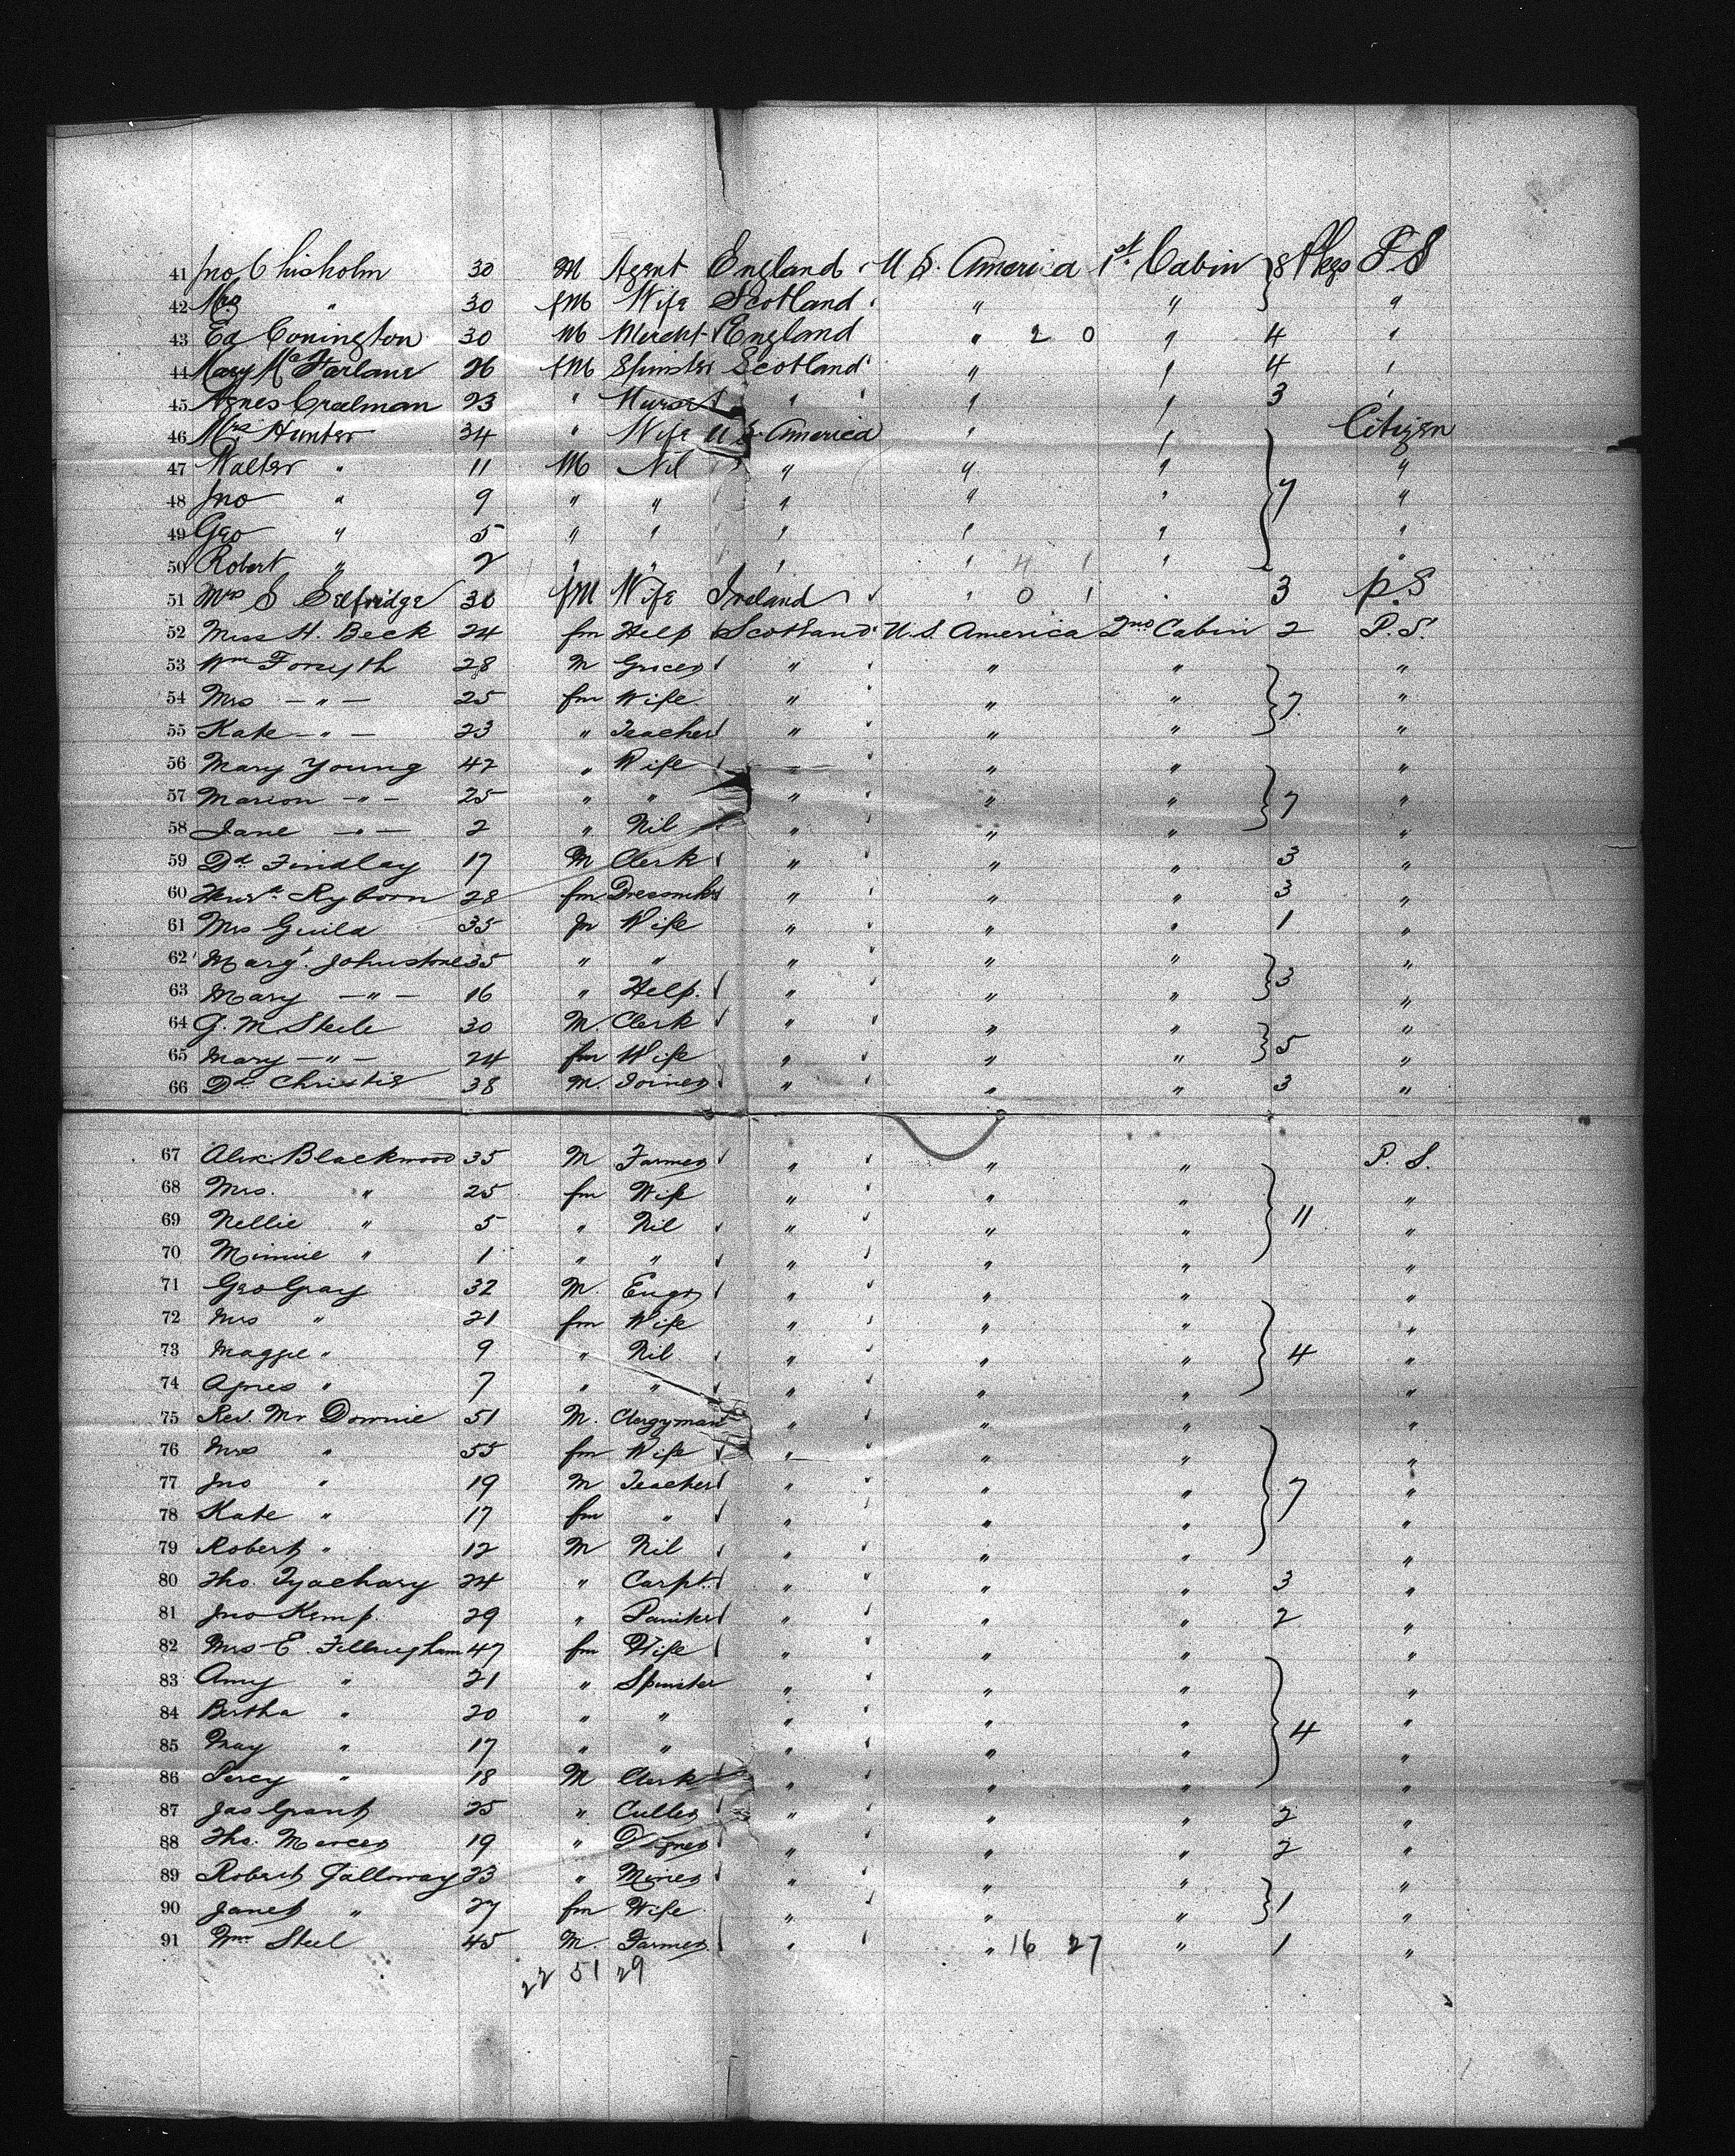 41 Jno Chisholm 30 M Agent England U S. America 1st Cabin 8 Pkgs P S
42 Mrs " 30 fM Wife Scotland " " "
43 Ed Conington 30 M Mercht England " 2 0 " 4 "
44 Mary McFarlane 26 fM Spinster Scotland " " 4 "
45 Agnes Creelman 23 " Nurse " " " 3 "
46 Mrs Hunter 34 " Wife U S America " " Citizen
47 Walter " 11 M Nil " " " "
48 Jno " 9 " " " " " 7 "
49 Geo " 5 " " " " " "
50 Robert " 2 " " " " 4 1 " "
51 Mrs S Selfridge 30 fM Wife Ireland " 0 1 " 3 P.S
52 Miss H. Beck 24 fm Help Scotland U.S. America 2nd Cabin 2 P.S.
53 Wm Forsyth 28 M Grocer " " " "
54 Mrs — " — 25 fm Wife " " " 7 "
55 Kate — " — 23 " Teacher " " " "
56 Mary Young 42 " Wife " " " "
57 Marion — " — 25 " " " " " 7 "
58 Jane — " — 2 " Nil " " " "
59 Dd Findlay 17 M Clerk " " " 3 "
60 Ryborn 28 fm Dressmkr " " " 3 "
61 Mrs Guild 35 fm Wife " " " 1 "
62 Margt. Johnstone 35 " " " " " "
63 Mary — " — 16 " Help. " " " 3 "
64 G. M Steele 30 M Clerk " " " "
65 Mary — " — 24 fm Wife " " " 5 "
66 Dd Christie 38 M. Joiner " " " 3 "
67 Alex. Blackwood 35 M Farmer " " " P. S.
68 Mrs. " 25 fm Wife " " " "
69 Nellie " 5 " Nil " " " 11 "
70 Minnie " 1 " " " " " "
71 Geo Gray 32 M. Engr " " " "
72 Mrs " 21 fm Wife " " " "
73 Maggie " 9 " Nil " " " 4 "
74 Agnes " 7 " " " " " "
75 Rev. Mr Downie 51 M. Clergyman " " " "
76 Mrs " 55 fm Wife " " " "
77 Jno " 19 M Teacher " " " 7 "
78 Kate " 17 fm " " " " "
79 Robert " 12 M Nil " " " "
80 Tho. Tyachary 24 " Carpt. " " " 3 "
81 Jno Kemp. 29 " Painter " " " 2 "
82 Mrs E. Fillingham 47 fm Wife " " " "
83 Amy " 21 " Spinster " " " "
84 Bertha " 20 " " " " " "
85 May " 17 " " " " " 4 "
86 Percy " 18 M Clerk " " " "
87 Jas Grant 25 " Cutler " " " 2 "
88 Tho. Mercer 19 " " " " 2 "
89 Robert Galloway 23 " Miner " " " "
90 Janet " 27 fm Wife " " " 1 "
91 Wm Steel 45 M. Farmer " " 16 27 " 1 "
22 51 29